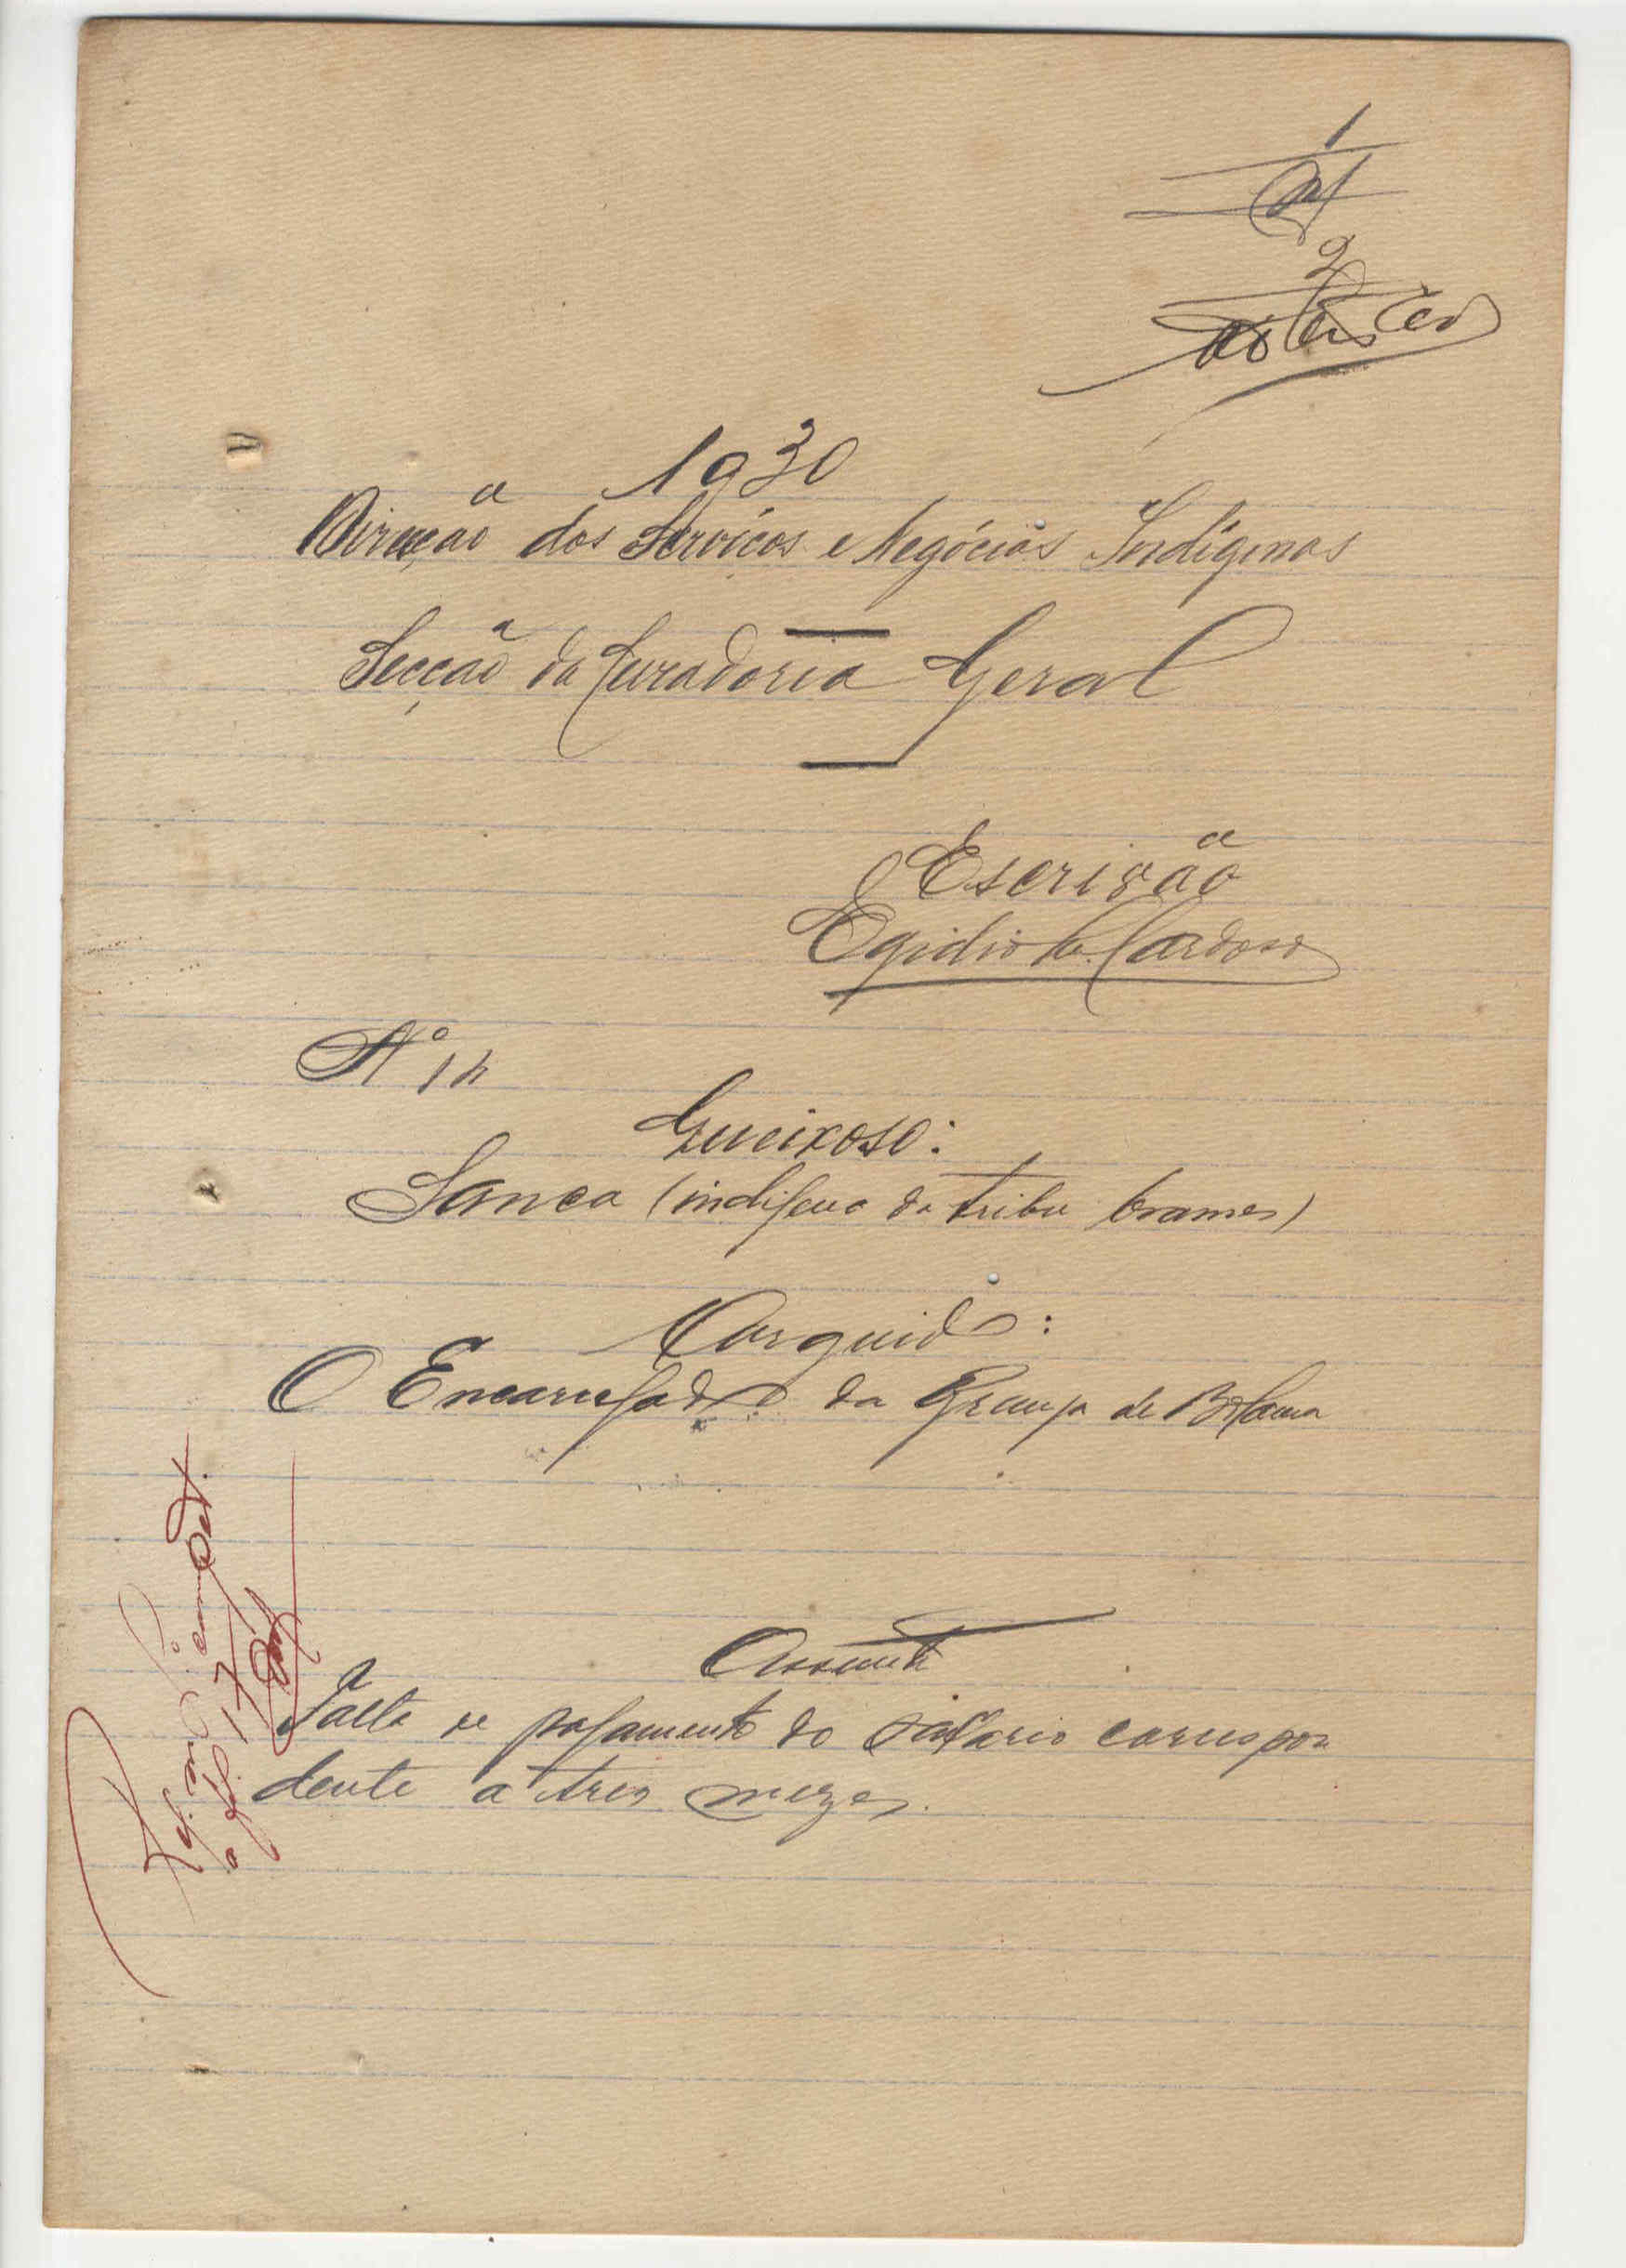 1
2
1930
Direcção dos Serviços e Negócios Indigenas
Secção da Curadoria Geral
Escrivão
Egidio Cardoso
Nº 14
Queixoso:
Sanca (indigena da tribu brames)
Arguido:
O Encarregado da Granja de Bolama
Assunto
Falta de pagamento do salario correspon
dente a tres mezes.